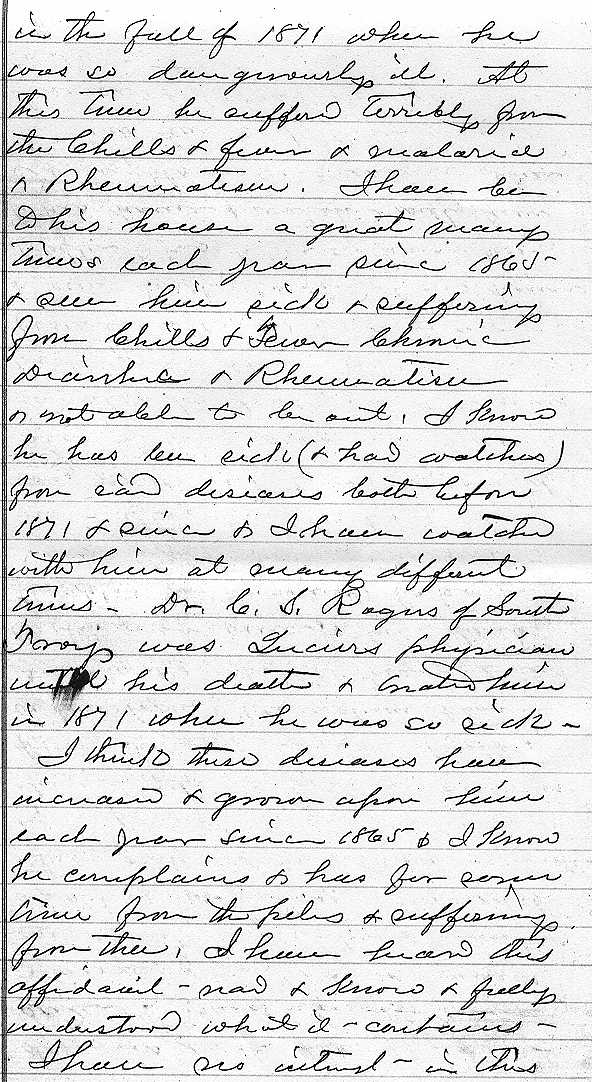 in the fall of 1871 when he
was so dangerously ill. At
this time he sufferd terribly from
the Chills & fever & malaria
& Rheumatism. I have been
to his house a great many
times each year since 1865
& seen him sick & suffering
from Chills & Fever Chronic
Diarrhea & Rheumatism
& not able to be out. I know
he has been sick (& had watches)
from said diseases both before
1871 & since & I have watched
with him at many different
times - Dr. C. S. Rogers of South
Troy was Lucius physician
until his death & treated him
in 1871 when he was so sick -
I think these diseases have
increased & grown upon him
each year since 1865 & I know
he complains & has for some
time from the piles & suffering
from them. I have heard this
affidavit - read & know & fully
understood what it - contains -
I have no interest - in this